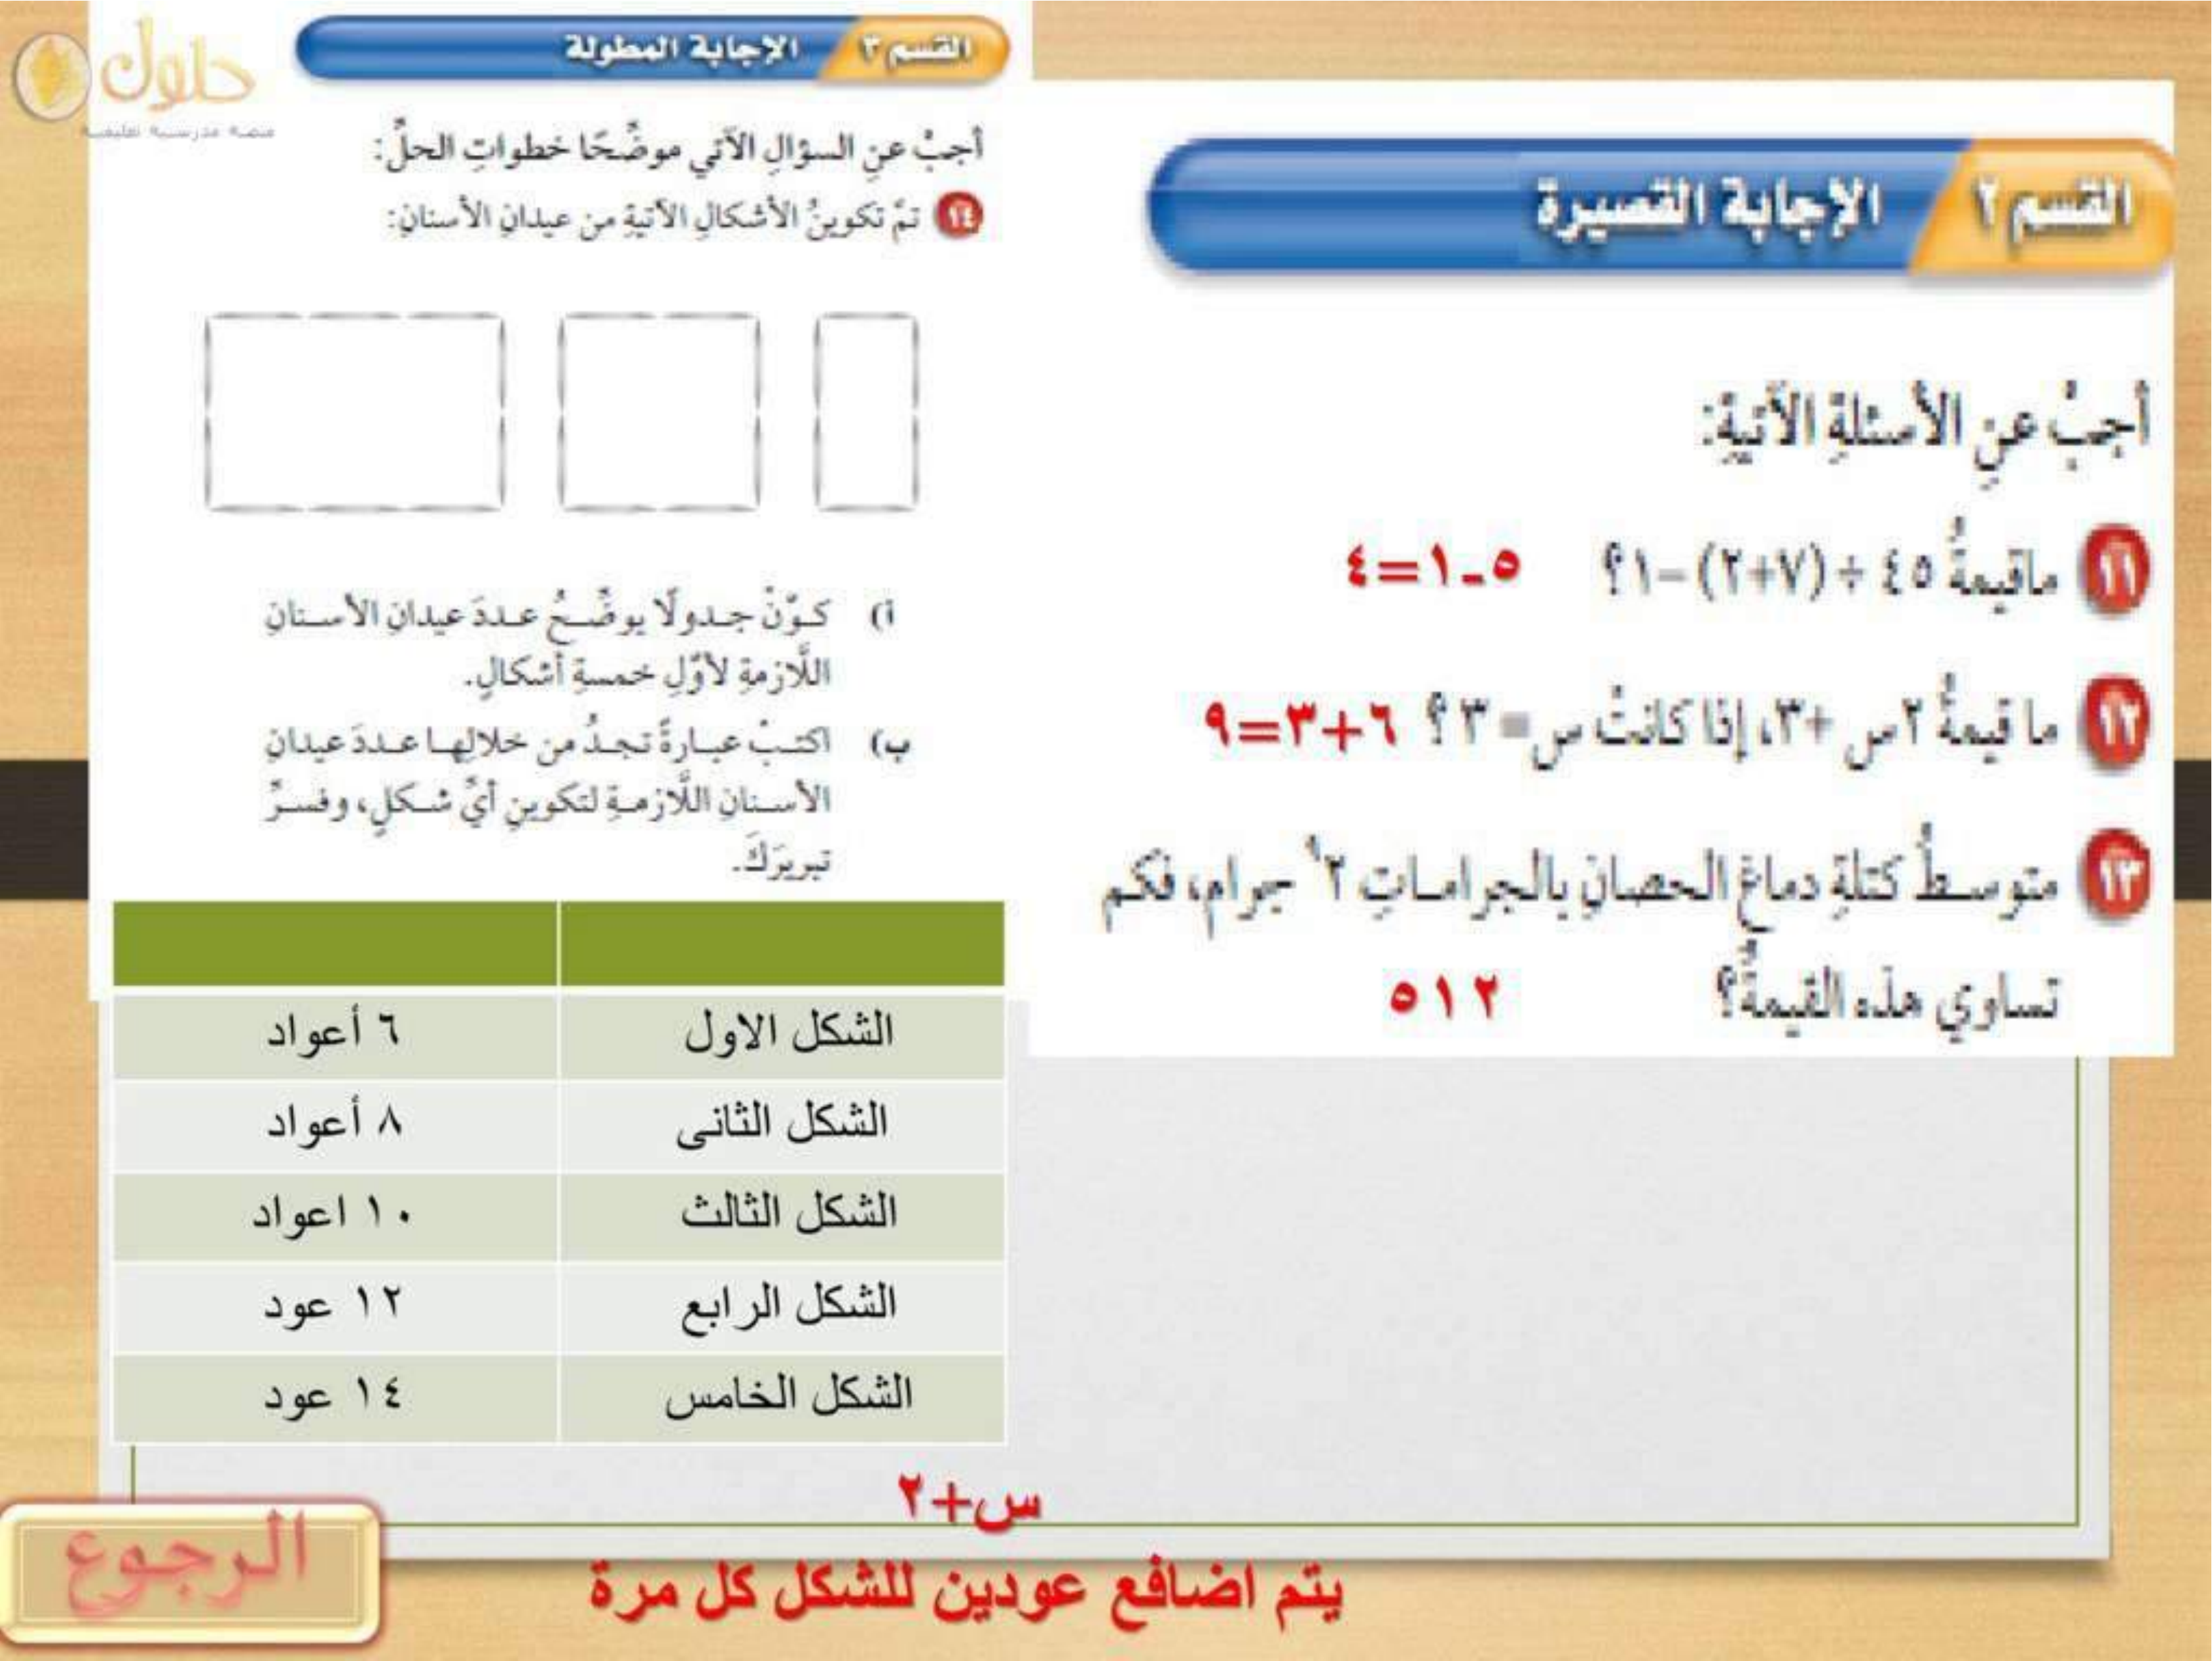 القسم ٢ الإجابة القصيرة
أجبْ عنِ الأسئلةِ الآتيةِ:
١١ ماقيمةُ ٤٥ ÷ (٧+٢) – ١؟ ٥-١=٤
١٢ ما قيمةُ ٢س +٣، إذا كانتْ س= ٣ ؟ ٦+٣=٩
١٣ متوسطُ كتلةِ دماغِ الحصانِ بالجراماتِ ٢^٩ جرام، فكم
تساوي هذه القيمةُ؟ ٥١٢
حلول
منصة مدرسية تعليمية
القسم ٣ الإجابة المطولة
أجبْ عنِ السؤالِ الآتي موضِّحًا خطواتِ الحلِّ:
١٤ تمَّ تكوينُ الأشكالِ الآتيةِ من عيدانِ الأسنانِ:
أ) كوِّنْ جدولًا يوضِّحُ عددَ عيدانِ الأسنانِ
اللَّازمةِ لأوَّلِ خمسةِ أشكالٍ.
ب) اكتبْ عبارةً تجدُ من خلالِها عددَ عيدانِ
الأسنانِ اللَّازمةِ لتكوينِ أيِّ شكلٍ، وفسرْ
تبريرَكَ.
الشكل الاول ٦ أعواد
الشكل الثانى ٨ أعواد
الشكل الثالث ١٠ اعواد
الشكل الرابع ١٢ عود
الشكل الخامس ١٤ عود
س+٢
يتم اضافع عودين للشكل كل مرة
الرجوع